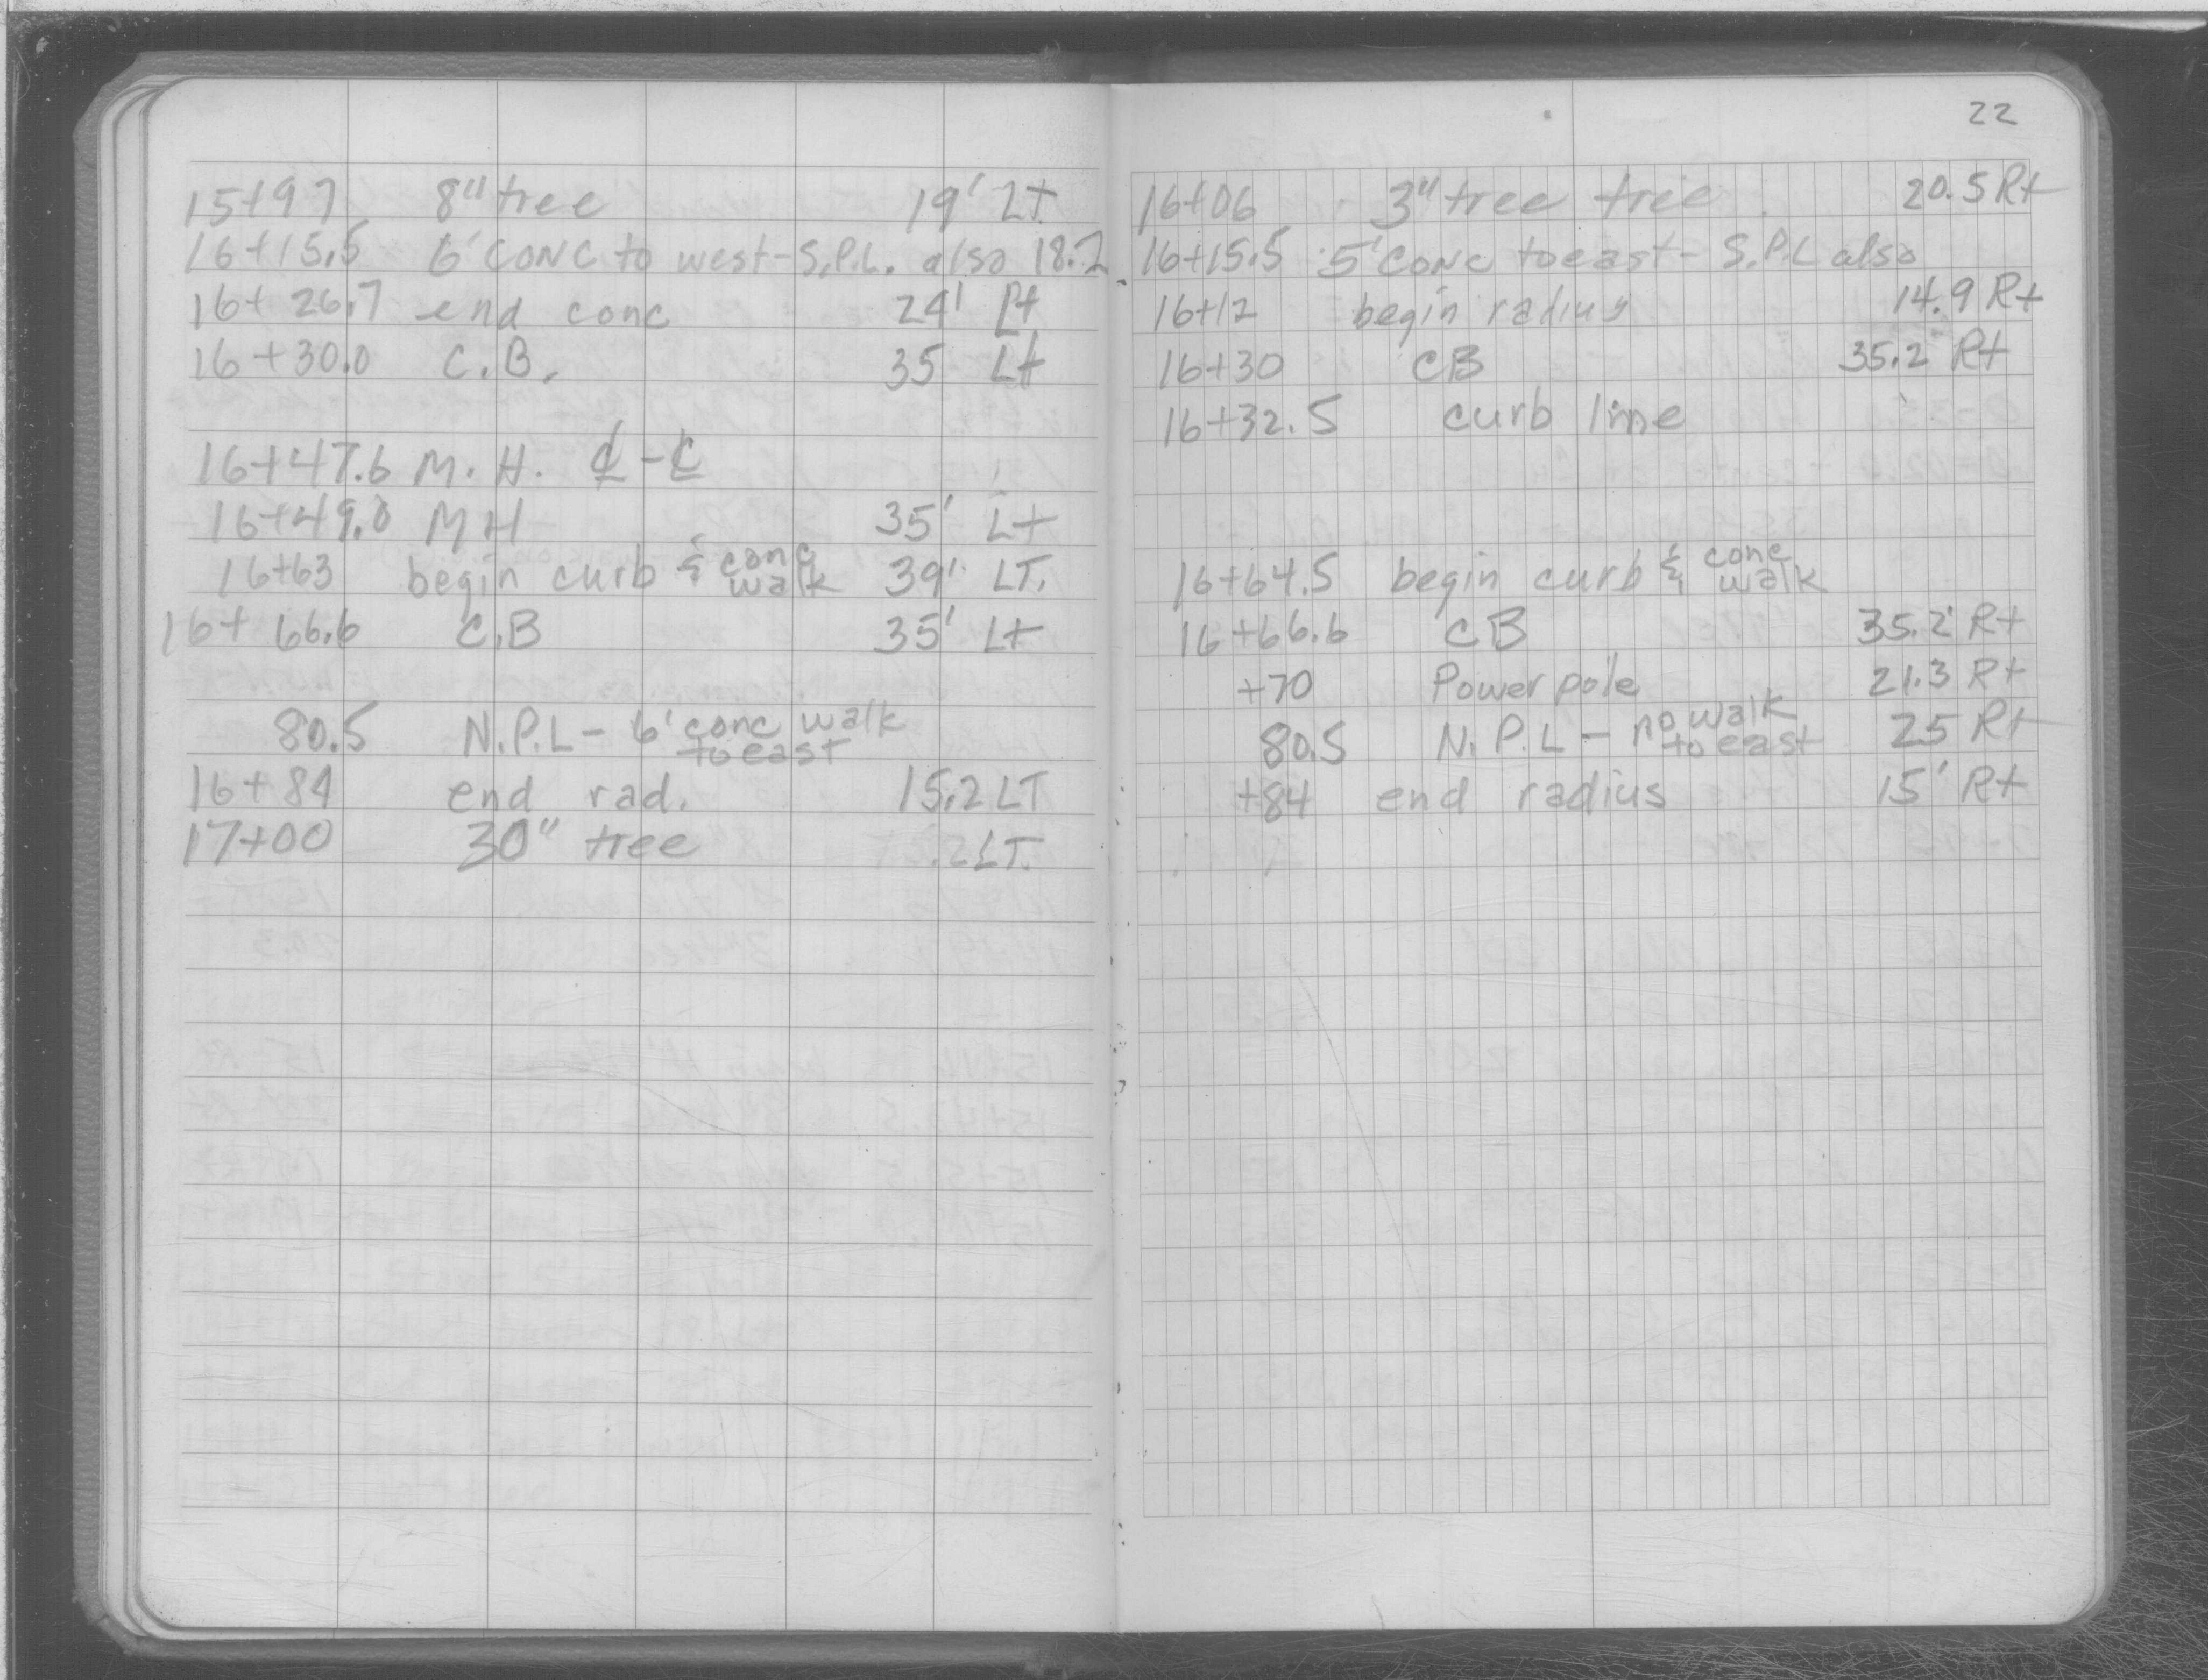 15+97 8" tree 19' LT.
16+15.5 6' conc to west-S.P.L. also 18.2
16+26.7 end conc 24' Lt
16+30.0 C.B. 35 Lt
16+47.6 M.H. ℄-℄
16+49.0 MH 35' Lt
16+63 begin curb & conc walk 39' LT.
16+66.6 C.B 35' Lt
80.5 N.P.L - 6' conc walk to east
16+84 end rad. 15.2 LT
17+00 30" tree LT.
22
16+06 3" tree tree 20.5 Rt
16+15.5 5' conc to east - S.P.L also
16+12 begin radius 14.9 Rt
16+30 CB 35.2 Rt
16+32.5 curb line
16+64.5 begin curb & conc walk
16+66.6 CB 35.2' Rt
+70 Power pole 21.3 Rt
80.5 N.P.L - no walk to east 25 Rt
+84 end radius 15' Rt